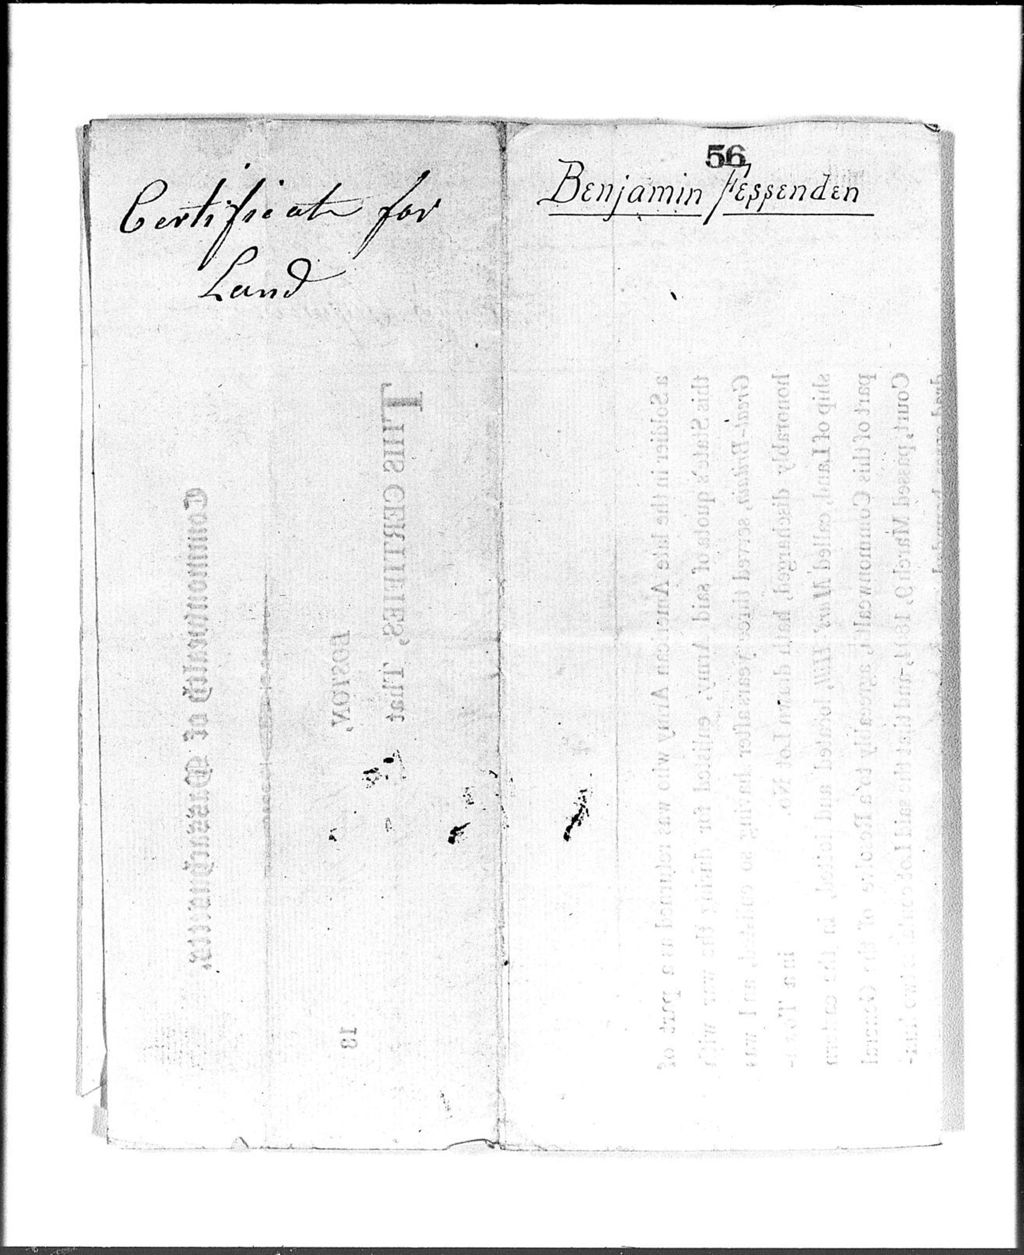 Certificate for
Land
56
Benjamin Fessenden
Commonwealth of Massachusetts.
BOSTON, 18
THIS CERTIFIES, That
a Soldier in the late American Army who was returned as a part of
this State's quota of said Army, enlisted for during the war with
Great-Britain, served three years after having so enlisted, and was
honorably discharged, hath drawn Lot No. in a Town-
ship of Land, called Mars' Hill, located and lotted, in the eastern
part of this Commonwealth, agreeably to a Resolve of the General
Court, passed March 9, 1804, and that the said Lot contains two hun-